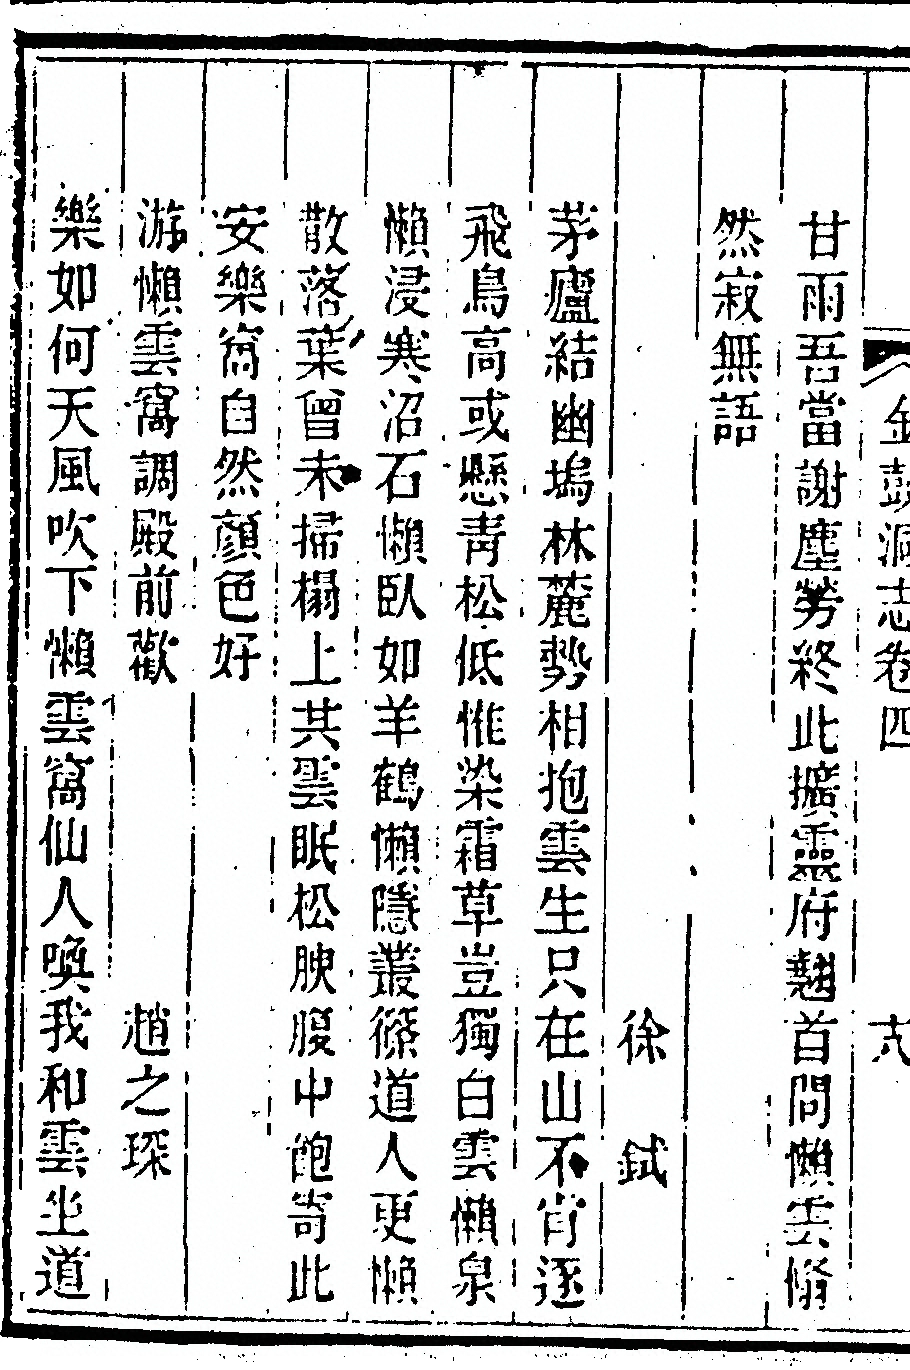 金鼓洞志卷四
甘雨吾當謝塵勞終此擴靈府翹首問懶雲翛
然寂無語
徐　鉽
茅廬結幽塢林麓勢相抱雲生只在山不肯逐
飛鳥高或懸青松低惟染霜草豈獨白雲懶泉
懶浸寒沼石懶臥如羊鶴懶隱叢篠道人更懶
散落葉曾未掃榻上共雲眠松腴腹中飽寄此
安樂窩自然顏色好
游懶雲窩調殿前歡
趙之琛
樂如何天風吹下懶雲窩仙人喚我和雲坐道